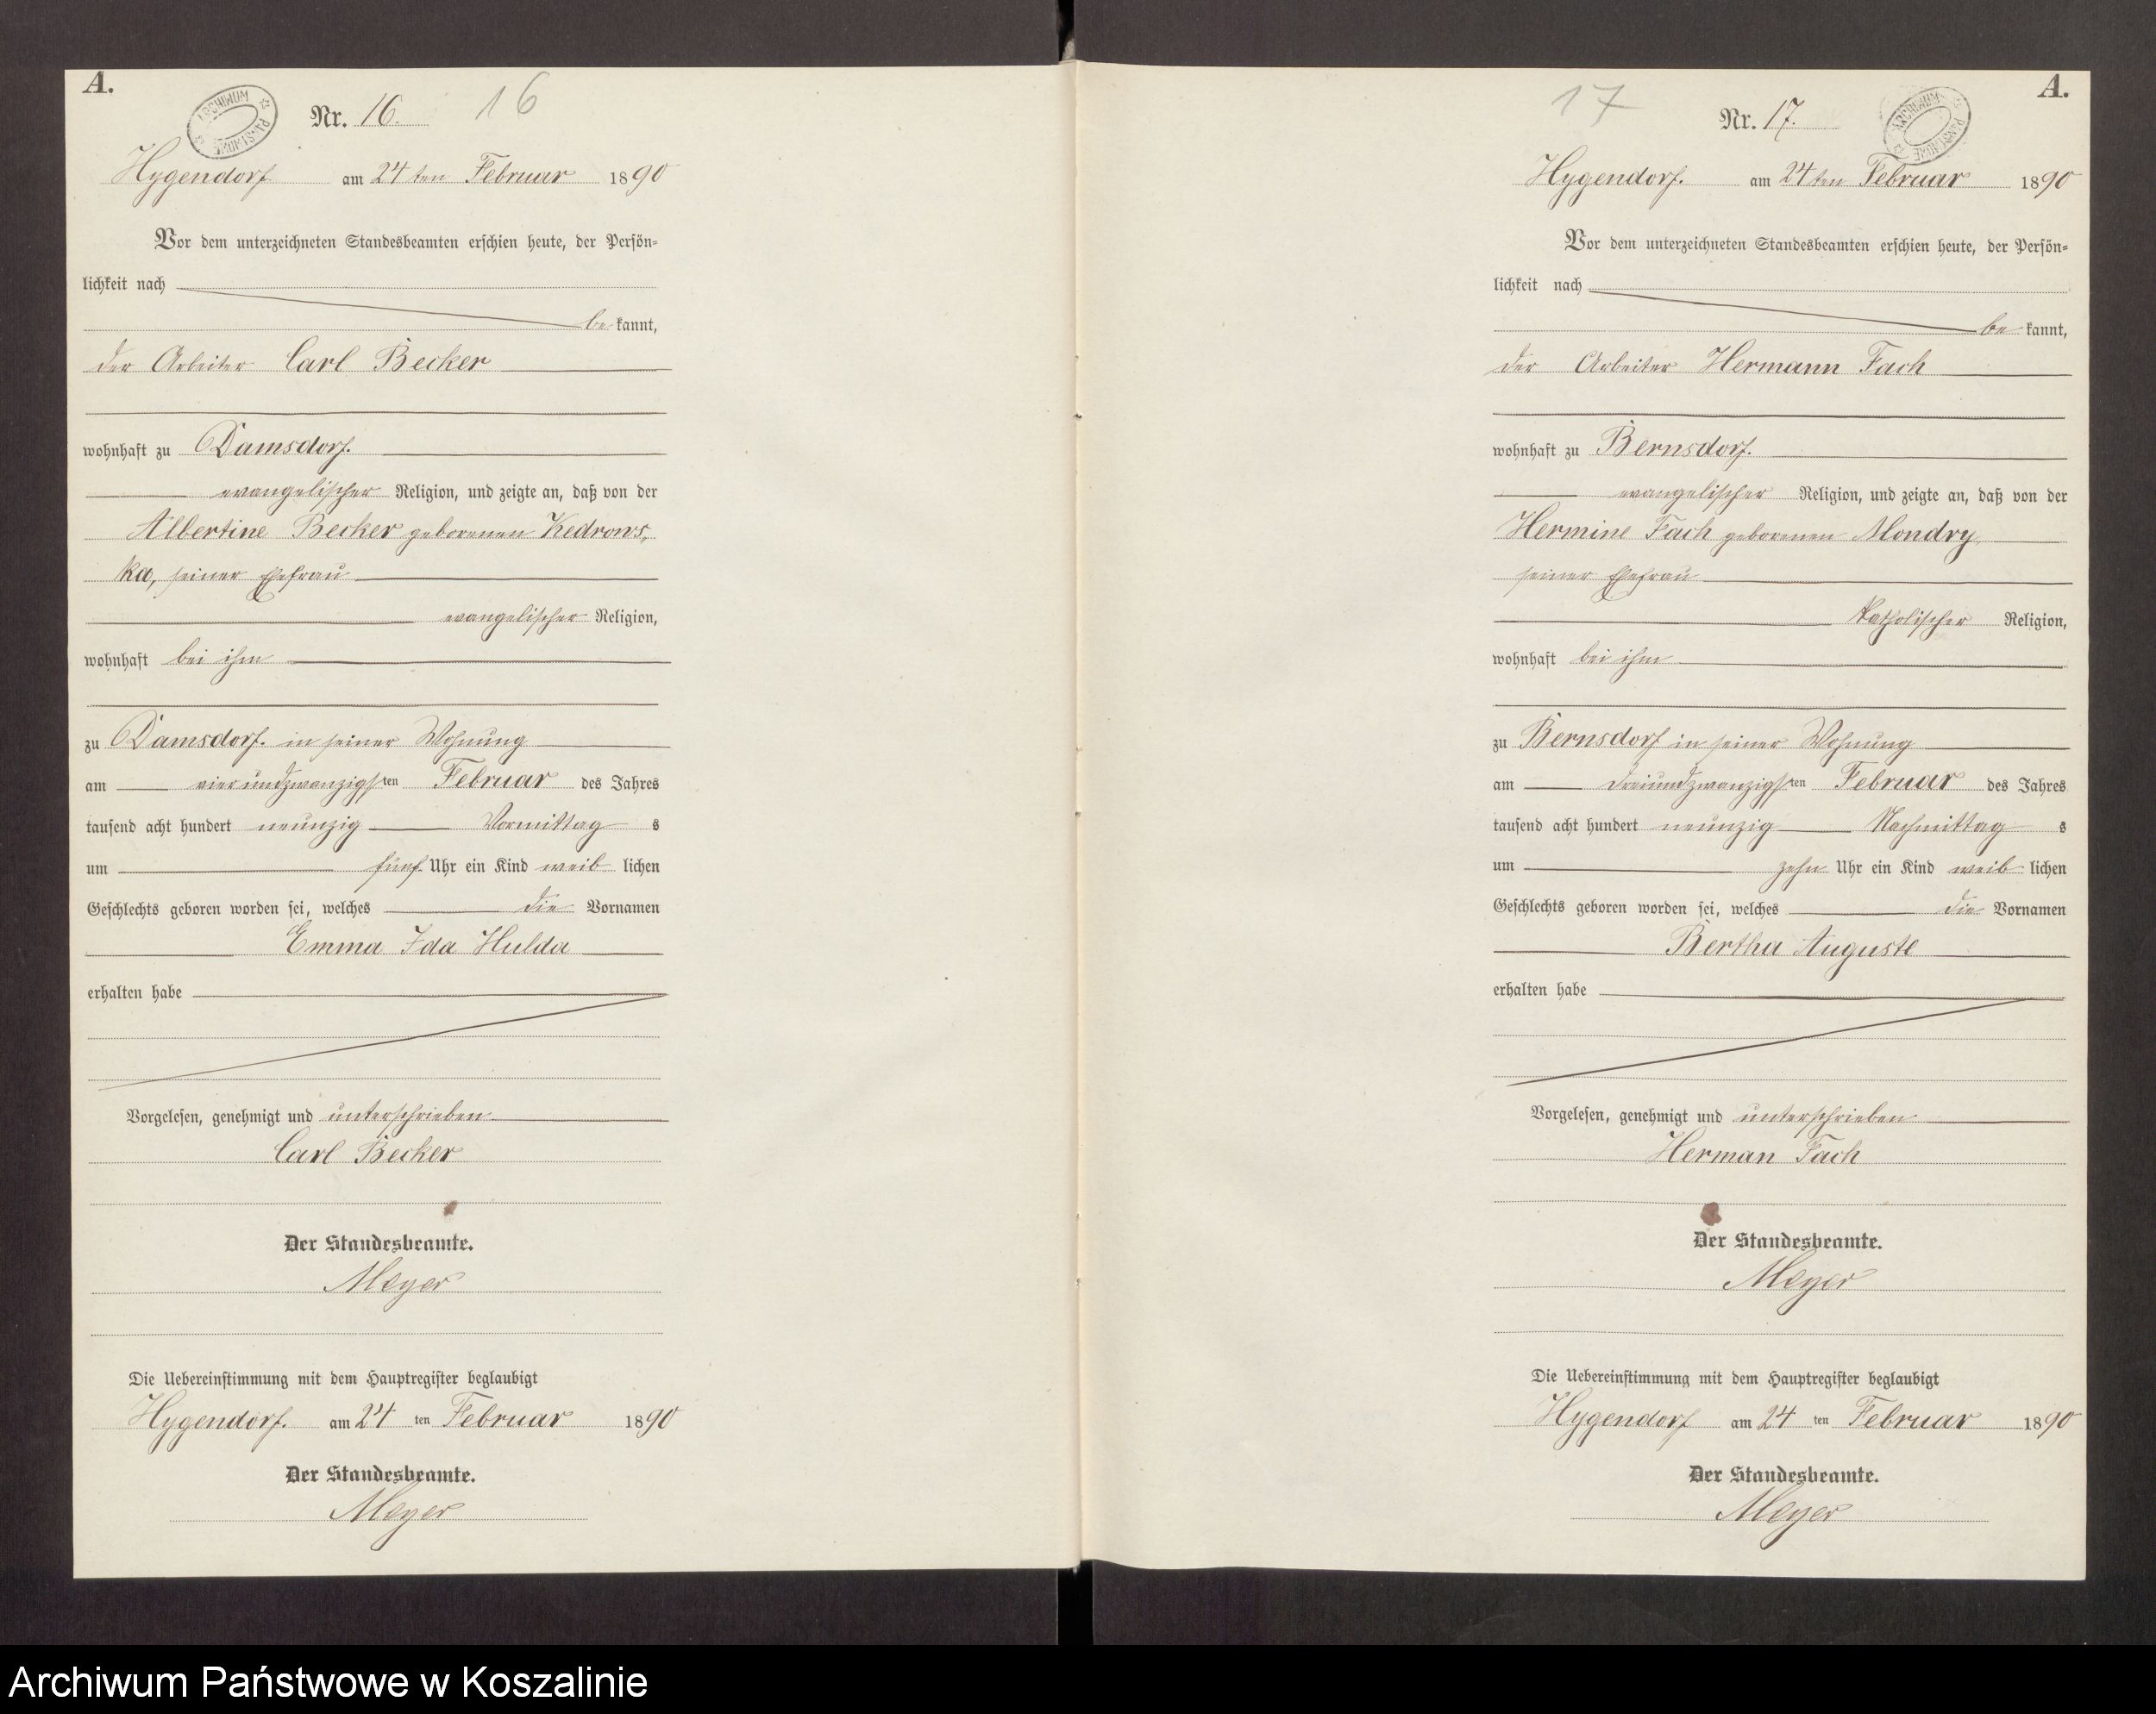 A.
ARCHIWUM PAŃSTWOWE
Nr. 16. 16
Hygendorf am 24ten Februar 1890
Vor dem unterzeichneten Standesbeamten erschien heute, der Persön-
lichkeit nach
be kannt,
der Arbeiter Carl Becker
wohnhaft zu Damsdorf.
evangelischer Religion, und zeigte an, daß von der
Albertine Becker geborenen Kedrows-
ka, seiner Ehefrau
evangelischer Religion,
wohnhaft bei ihm
zu Damsdorf. in seiner Wohnung
am vierundzwanzigsten Februar des Jahres
tausend acht hundert neunzig Vormittag s
um fünf Uhr ein Kind weib lichen
Geschlechts geboren worden sei, welches die Vornamen
Emma Ida Hulda
erhalten habe
Vorgelesen, genehmigt und unterschrieben
Carl Becker
Der Standesbeamte.
Meyer
Die Uebereinstimmung mit dem Hauptregister beglaubigt
Hygendorf. am 24 ten Februar 1890
Der Standesbeamte.
Meyer
A.
17 Nr. 17.
ARCHIWUM PAŃSTWOWE
Hygendorf. am 24ten Februar 1890
Vor dem unterzeichneten Standesbeamten erschien heute, der Persön-
lichkeit nach
be kannt,
der Arbeiter Hermann Fach
wohnhaft zu Bernsdorf.
evangelischer Religion, und zeigte an, daß von der
Hermine Fach geborenen Mondry,
seiner Ehefrau
katholischer Religion,
wohnhaft bei ihm
zu Bernsdorf in seiner Wohnung
am dreiundzwanzigsten Februar des Jahres
tausend acht hundert neunzig Nachmittag s
um zehn Uhr ein Kind weib lichen
Geschlechts geboren worden sei, welches die Vornamen
Bertha Auguste
erhalten habe
Vorgelesen, genehmigt und unterschrieben
Herman Fach
Der Standesbeamte.
Meyer
Die Uebereinstimmung mit dem Hauptregister beglaubigt
Hygendorf am 24 ten Februar 1890
Der Standesbeamte.
Meyer
Archiwum Państwowe w Koszalinie